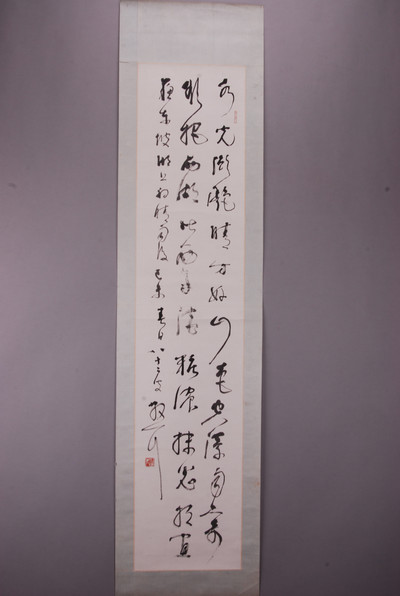 水光瀲灩晴方好山色空濛雨亦奇
欲把西湖比西子淡粧濃抹總相宜
蘇東坡湖上初晴雨後己未春日八十二叟散耳